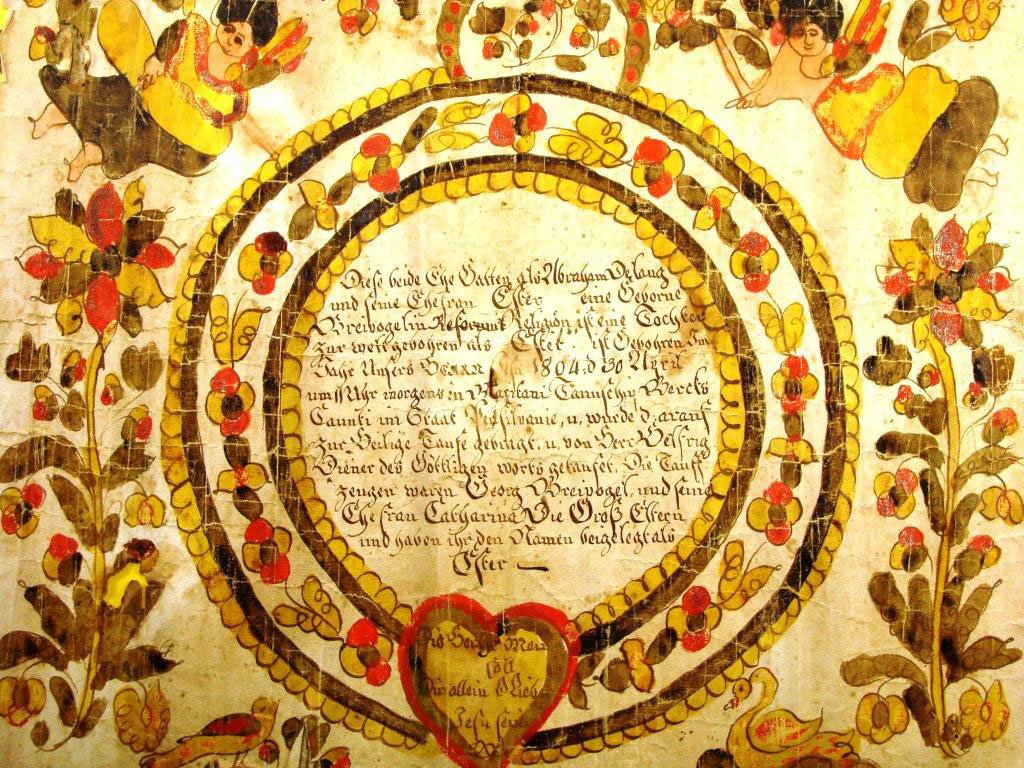 Diese beide Ehe Gatten als Abraham Delang
und seine Ehefrau Ester eine Geborne
Breivogelin Reformirt Religion ist eine Tochter
zur welt gebohren als Ester ist Gebohren im
Jahr Unsers Herrn 1804 d 30 April
um 11 Uhr morgens in Taunschip Bercks
Caunti im Staat u. wurde darauf
zur Heilige Taufe gebracht. u. von Herr Helfrig
Diener des Göttligen worts getaufet. Die Tauff
zeugen waren Georg Breivogel und seine
Ehefrau Catharina Die Groß Eltern
und haben ihr den Namen beigelegt als
Ester
Herze Mein
soll
Dir allein O Liebster
Jesu sein